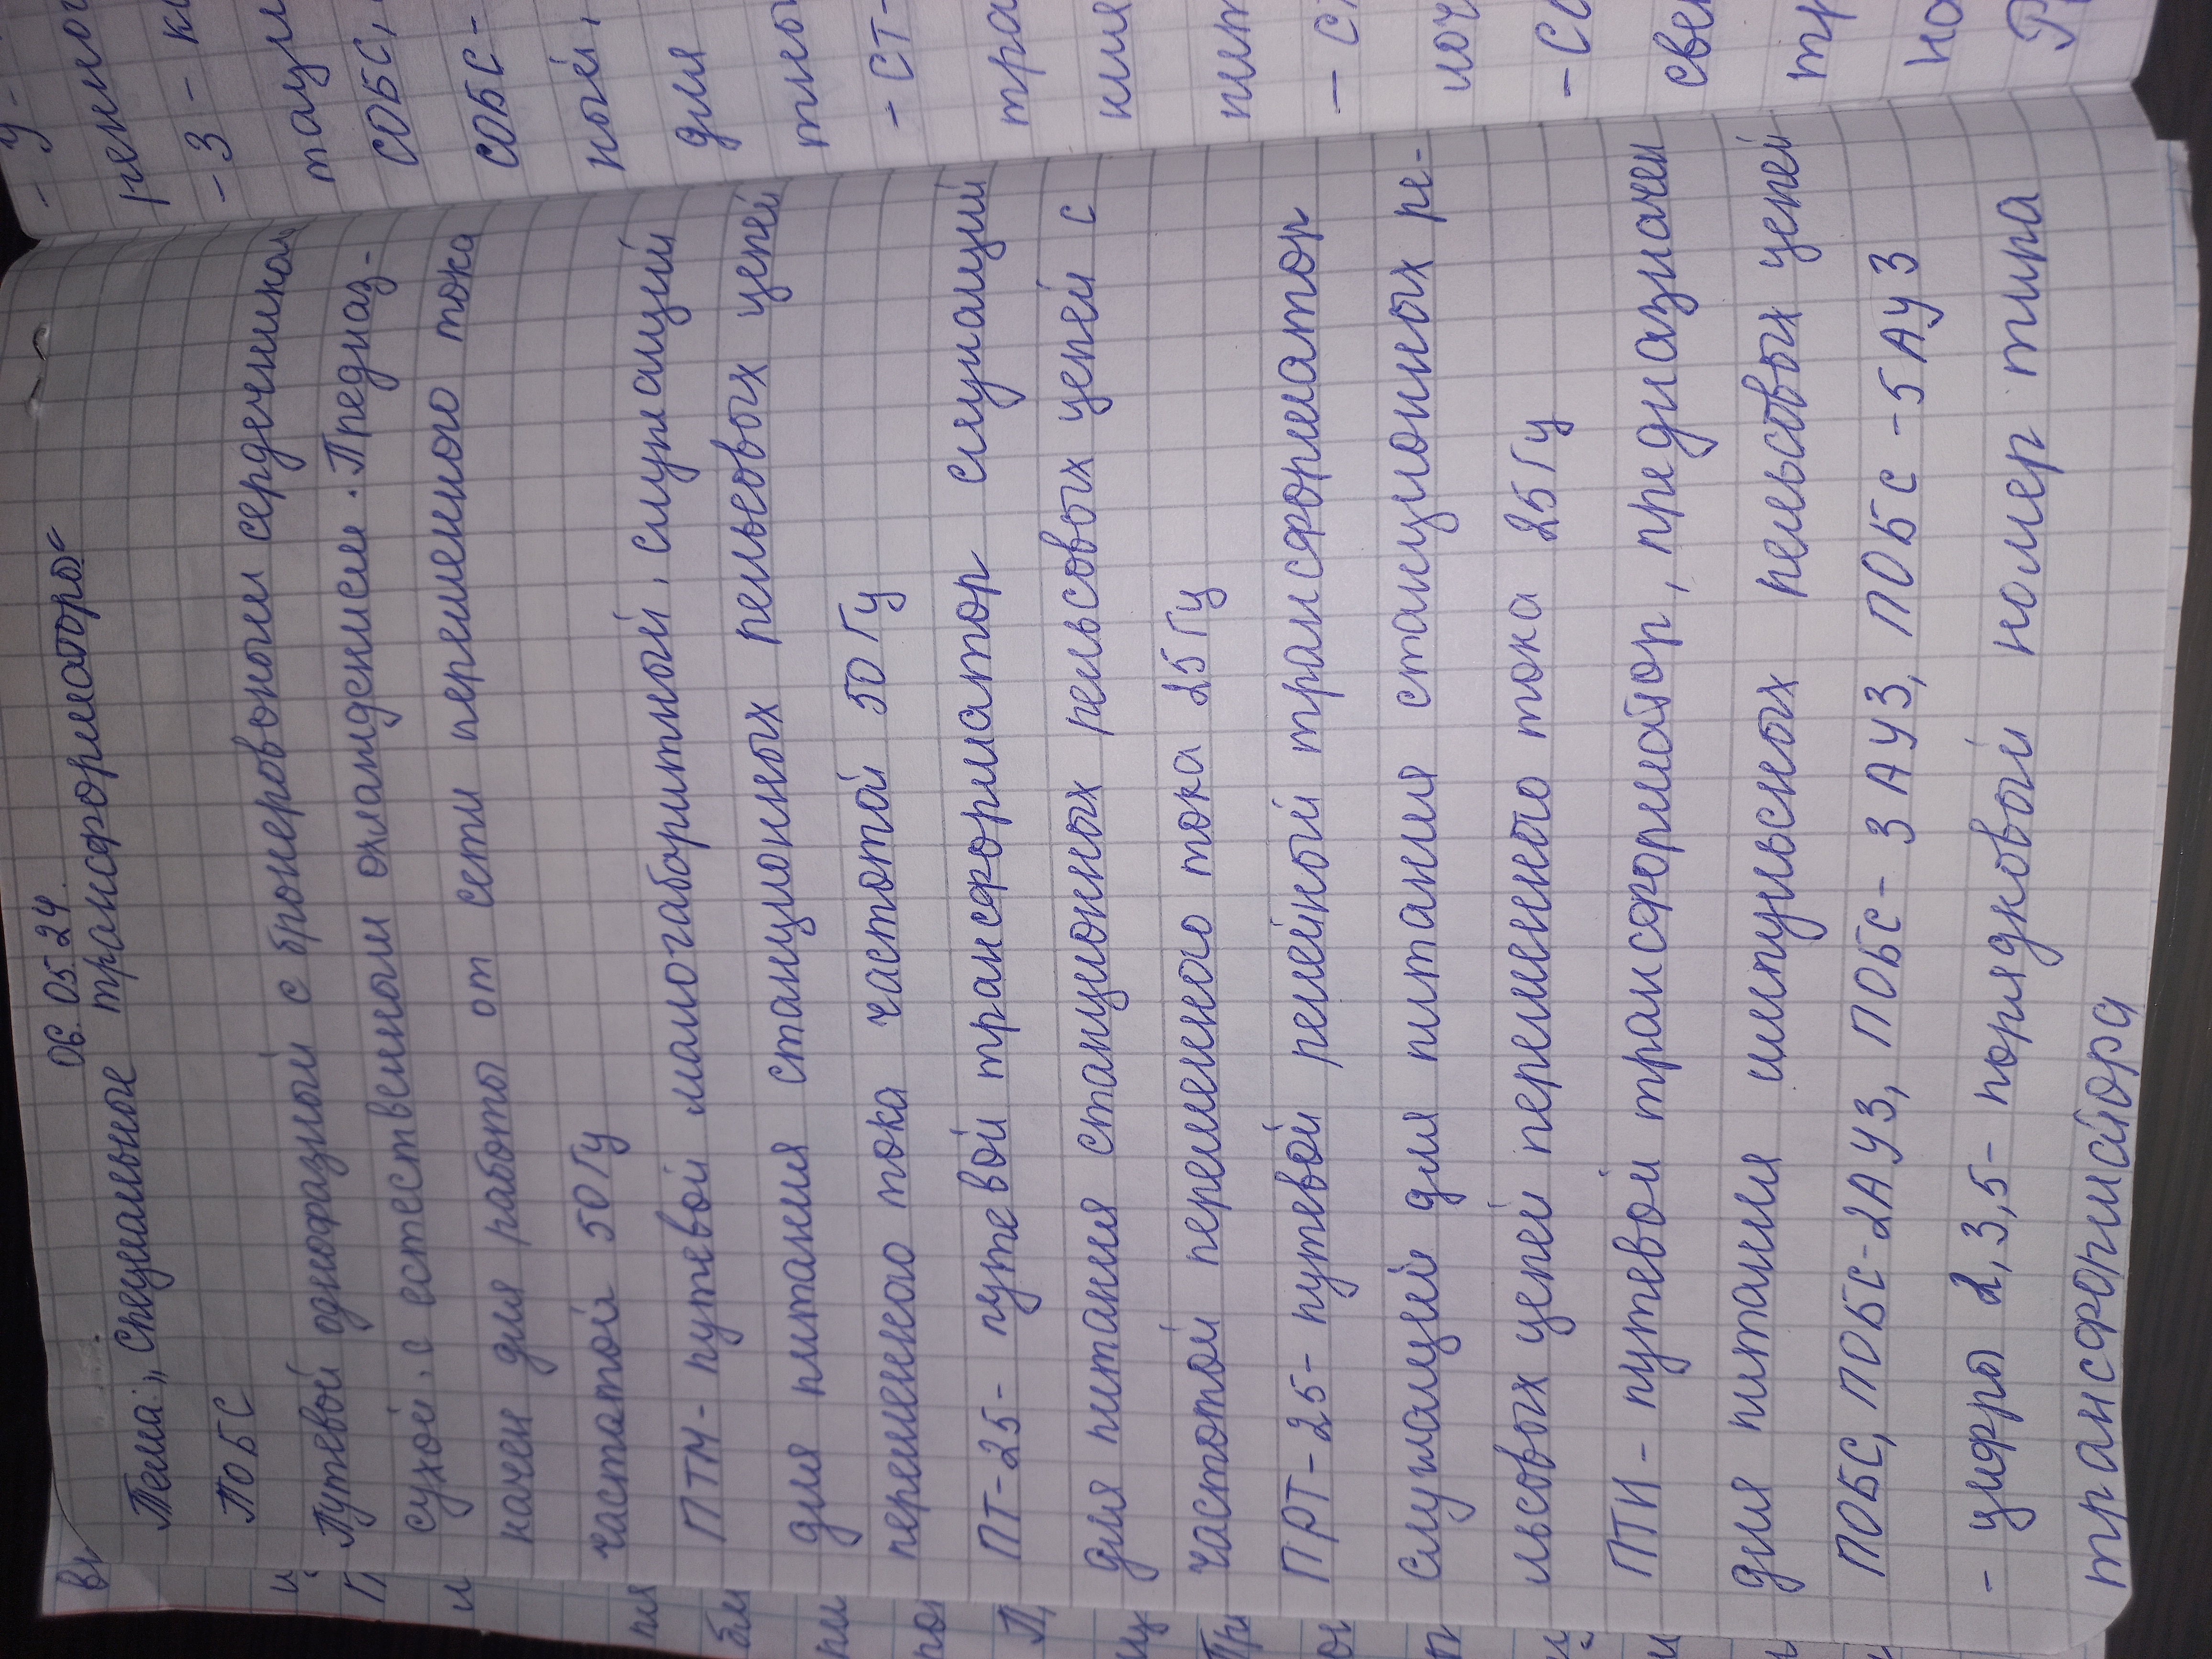 06.05.24
Тема: „Специальное трансформаторы“
ПОБС
Путевой однофазный с бронеровоном сердечником
сухой, с естественном охлаждением. Предназ-
начен для работы от сети переменного тока
частотой 50 Гц
ПТМ - путевой малогабаритный, служащий
для питания станционных рельсовых цепей
переменного тока частотой 50 Гц
ПТ-25 - путевой трансформатор служащий
для питания станционных рельсовых цепей с
частотой переменного тока 25 Гц
ПРТ-25 - путевой релейный трансформатор
служащей для питания станционных ре-
льсовых цепей переменного тока 25 Гц
ПТИ - путевой трансформатор, предназначен
для питания импульсных рельсовых цепей
ПОБС, ПОБС-2АУ3, ПОБС-3АУ3, ПОБС-5АУ3
- цифры 2,3,5 - порядковый номер типа
трансформатора
- У -
- З - к
СОБС,
СОБС -
ной,
для
- СТ -
тра
- С